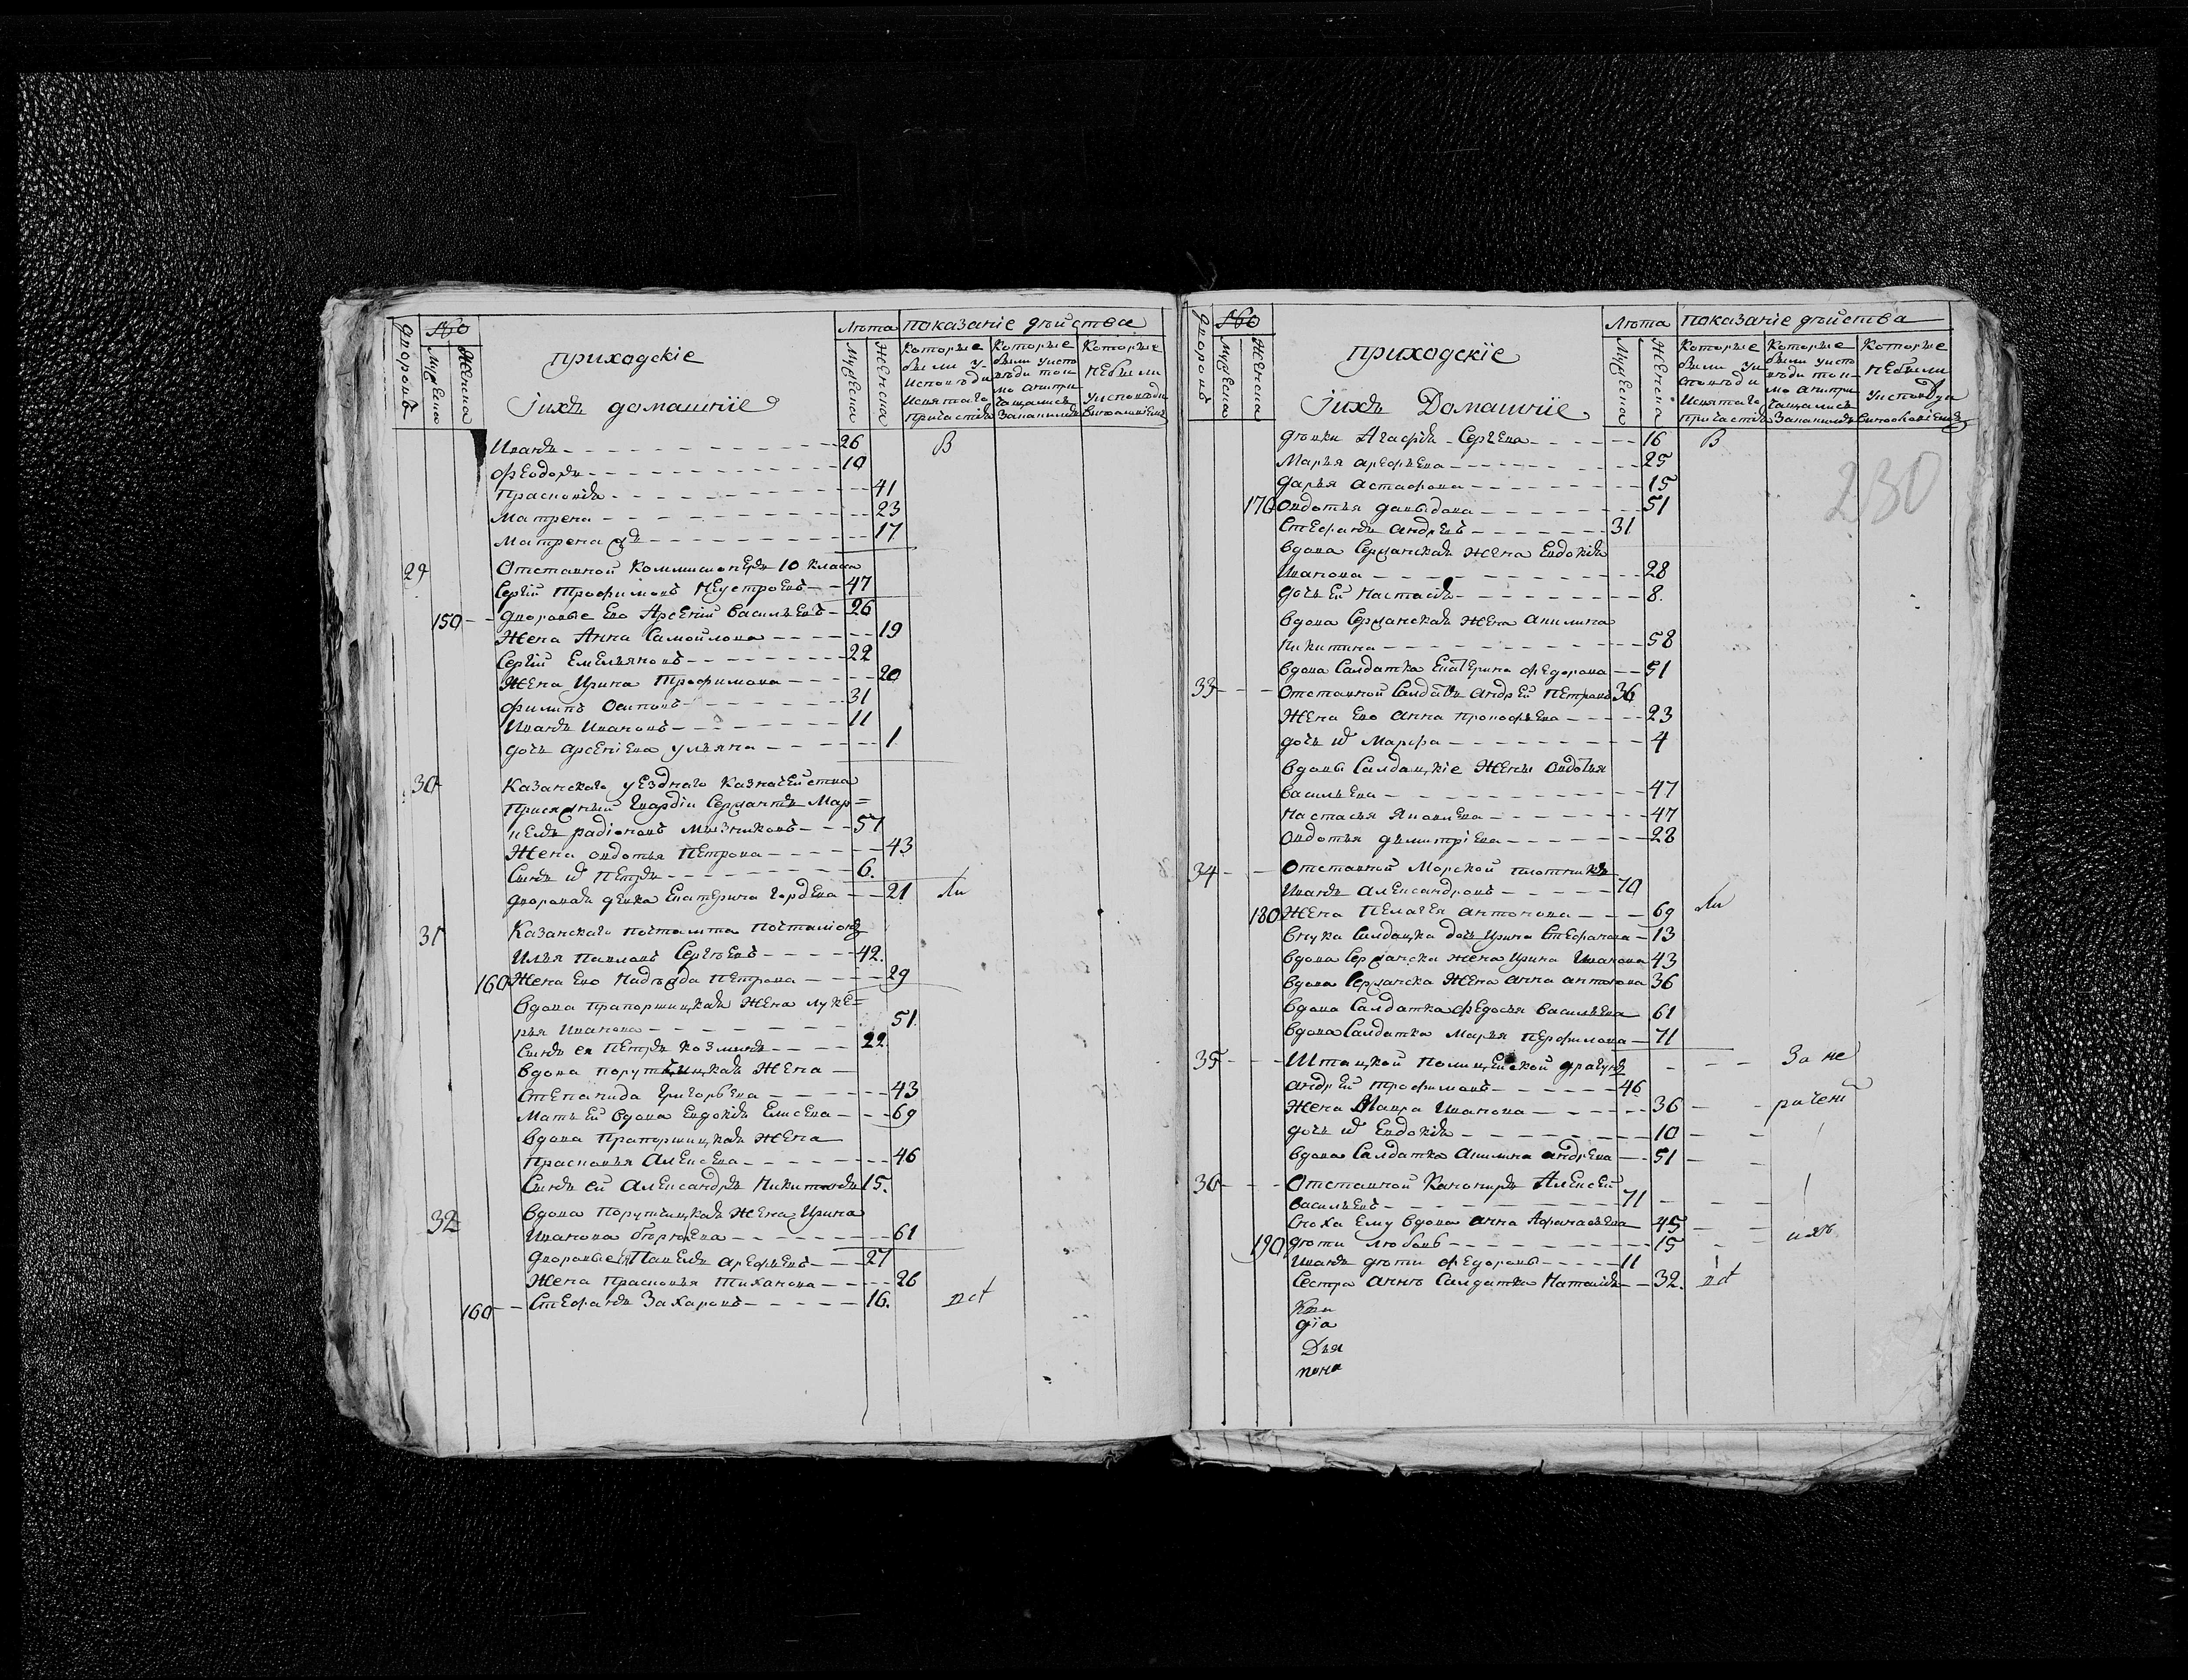 Дворовъ
№
Мужеска
Женска
приходскіе
Іихъ домашніе
Лѣта
Мужеска
Женска
показаніе дѣиства
Которые были у исповѣди и святаго причастія
Которые были у исповѣди токмо а не причащались
Которые небыли у исповѣди
Иванъ 26
Феодоръ 10
Прасковія 41
Матрена 23
Матрена 17
29 Отставной Коммисіонеръ 10 класа
Сергіи Трофимовъ Неустроевъ 47
150 дворовые Ево Арсеніи Васильевъ 26
Жена Анна Самоилова 19
Сергіи Емельяновъ 22
Жена Ирина Трофимова 20
Филипъ Осиповъ 31
Иванъ Ивановъ 11
дочь Арсеніева Ульяна 1
30 Казанскаго уезднаго Казначеиства
Присяжныи Гвардіи Сержантъ Мар=
келъ Радіоновъ Мызниковъ 57
Жена овдотья Петрова 43
Сынъ их Петръ 6
дворовая девка Екатерина Гордеева 21
31 Казанскаго Почтамта Почталіонъ
Илья Павловъ Сергѣевъ 42
160 Жена Ево Надѣжда Петрова 29
Вдова Прапорщицкая Жена луке=
рья Иванова 51
Сынъ ея Петръ Козминъ 22
Вдова порутчицкая Жена
Степанида Григорьева 43
Мать Ей Вдова Евдокія Елисеева 69
Вдова Прапорщицкая Жена
Прасковья Алексеева 46
Сынъ ей Александръ Никитинъ 15
32 Вдова Порутчицкая Жена Ирина
Иванова 61
дворовые Павелъ Арефьевъ 27
Жена Прасковья Тиханова 26
160 Стефанъ Захаровъ 16
Дворовъ
№
Мужеска
Женска
приходскіе
Іихъ Домашніе
Лѣта
Мужеска
Женска
показаніе дѣиства
Которые были у исповѣди и святаго причастія
Которые были у исповѣди токмо а не причащались
Которые небыли у исповѣди
230
дѣвки Агафія Сергеева 16 В
Марья Арефьева 25
Дарья Астафьева 15
170 Овдотья Давыдова 51
Стефанъ Андреевъ 31
Вдова Сержанская Жена Евдокія
Иванова 28
дочь Ей Настасія 8
Вдова Сержанская Жена Акилина
Никитина 58
Вдова Салдатка Екатерина Федорова 51
33 Отставной Салдатъ Андрей Петровъ 36
Жена Ево Анна Прокофьева 23
дочь их Марфа 4
Вдовы Салдацкіе Жены Овдотья
Васильева 47
Настасья Яковлева 47
Овдотья Дьмитріева 28
34 Отставной Морской плотникъ
Иванъ Александровъ 70
180 Жена Пелагея Антонова 69
Внука Салдацка дочь Ирина Стефанова 13
Вдова Сержанска жена Ирина Иванова 43
Вдова Сержанска Жена Анна Антонова 36
Вдова Салдатка Федосья Васильева 61
Вдова Салдатка Марья Перфилова 71
35 Штацкой Полицейской драгунъ За не
Андрей Трофимовъ 46
Жена Мавра Иванова 36 рачені
дочь их Евдокія 10
Вдова Салдатка Акилина Андреева 51
36 Отставной Канониръ Алексей
Васильевъ 71
Сноха Ему Вдова Анна Афанасьева 45
190 дѣти Любовь 15
Иванъ дѣти Федоровы 11
Сестра Аннѣ Салдатка Наталія 32
дія
Дья